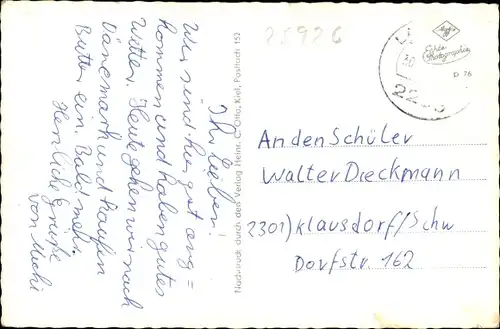 Ihr Lieben!
Wir sind hier gut ang=
kommen und haben gutes
Wetter. Heute gehen wir nach
Dänemark und kaufen
Butter ein. Bald mehr.
Herzliche Grüße
von Muchi
Nachdruck durch den Verlag Heinr. C. Otto, Kiel, Postfach 152
25926
Agfa
Echte
Photographie
D 76
30.
An den Schüler
Walter Dieckmann
2301) Klausdorf/Schw
Dorfstr. 162